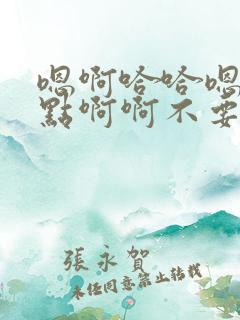 嗯啊哈哈嗯
點啊啊不要
張永賀
未经同意禁止转载